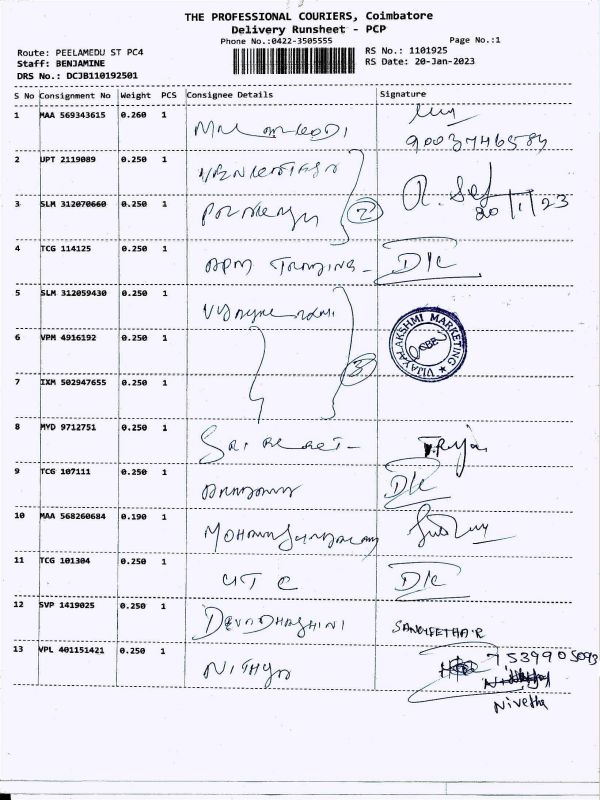 THE PROFESSIONAL COURIERS, Coimbatore
Delivery Runsheet - PCP
Phone No.:0422-3505555 Page No.:1
Route: PEELAMEDU ST PC4 RS No.: 1101925
Staff: BENJAMINE RS Date: 20-Jan-2023
DRS No.: DCJB110192501
S No Consignment No Weight PCS Consignee Details Signature
1 MAA 569343615 0.260 1
2 UPT 2119089 0.250 1
3 SLM 312070660 0.250 1 2 20/1/23
4 TCG 114125 0.250 1 APM TRADING - D/C
5 SLM 312059430 0.250 1
6 VPM 4916192 0.250 1 VIJAYALAKSHMI MARKETING
7 IXM 502947655 0.250 1 3
8 MYD 9712751 0.250 1
9 TCG 107111 0.250 1 D/C
10 MAA 568260684 0.190 1 MOHANASUNDARAM
11 TCG 101304 0.250 1 UTC D/C
12 SVP 1419025 0.250 1 DEVADHASHINI SANGEETHA.R
13 VPL 401151421 0.250 1 NITHYA 7539905093
Nivetha